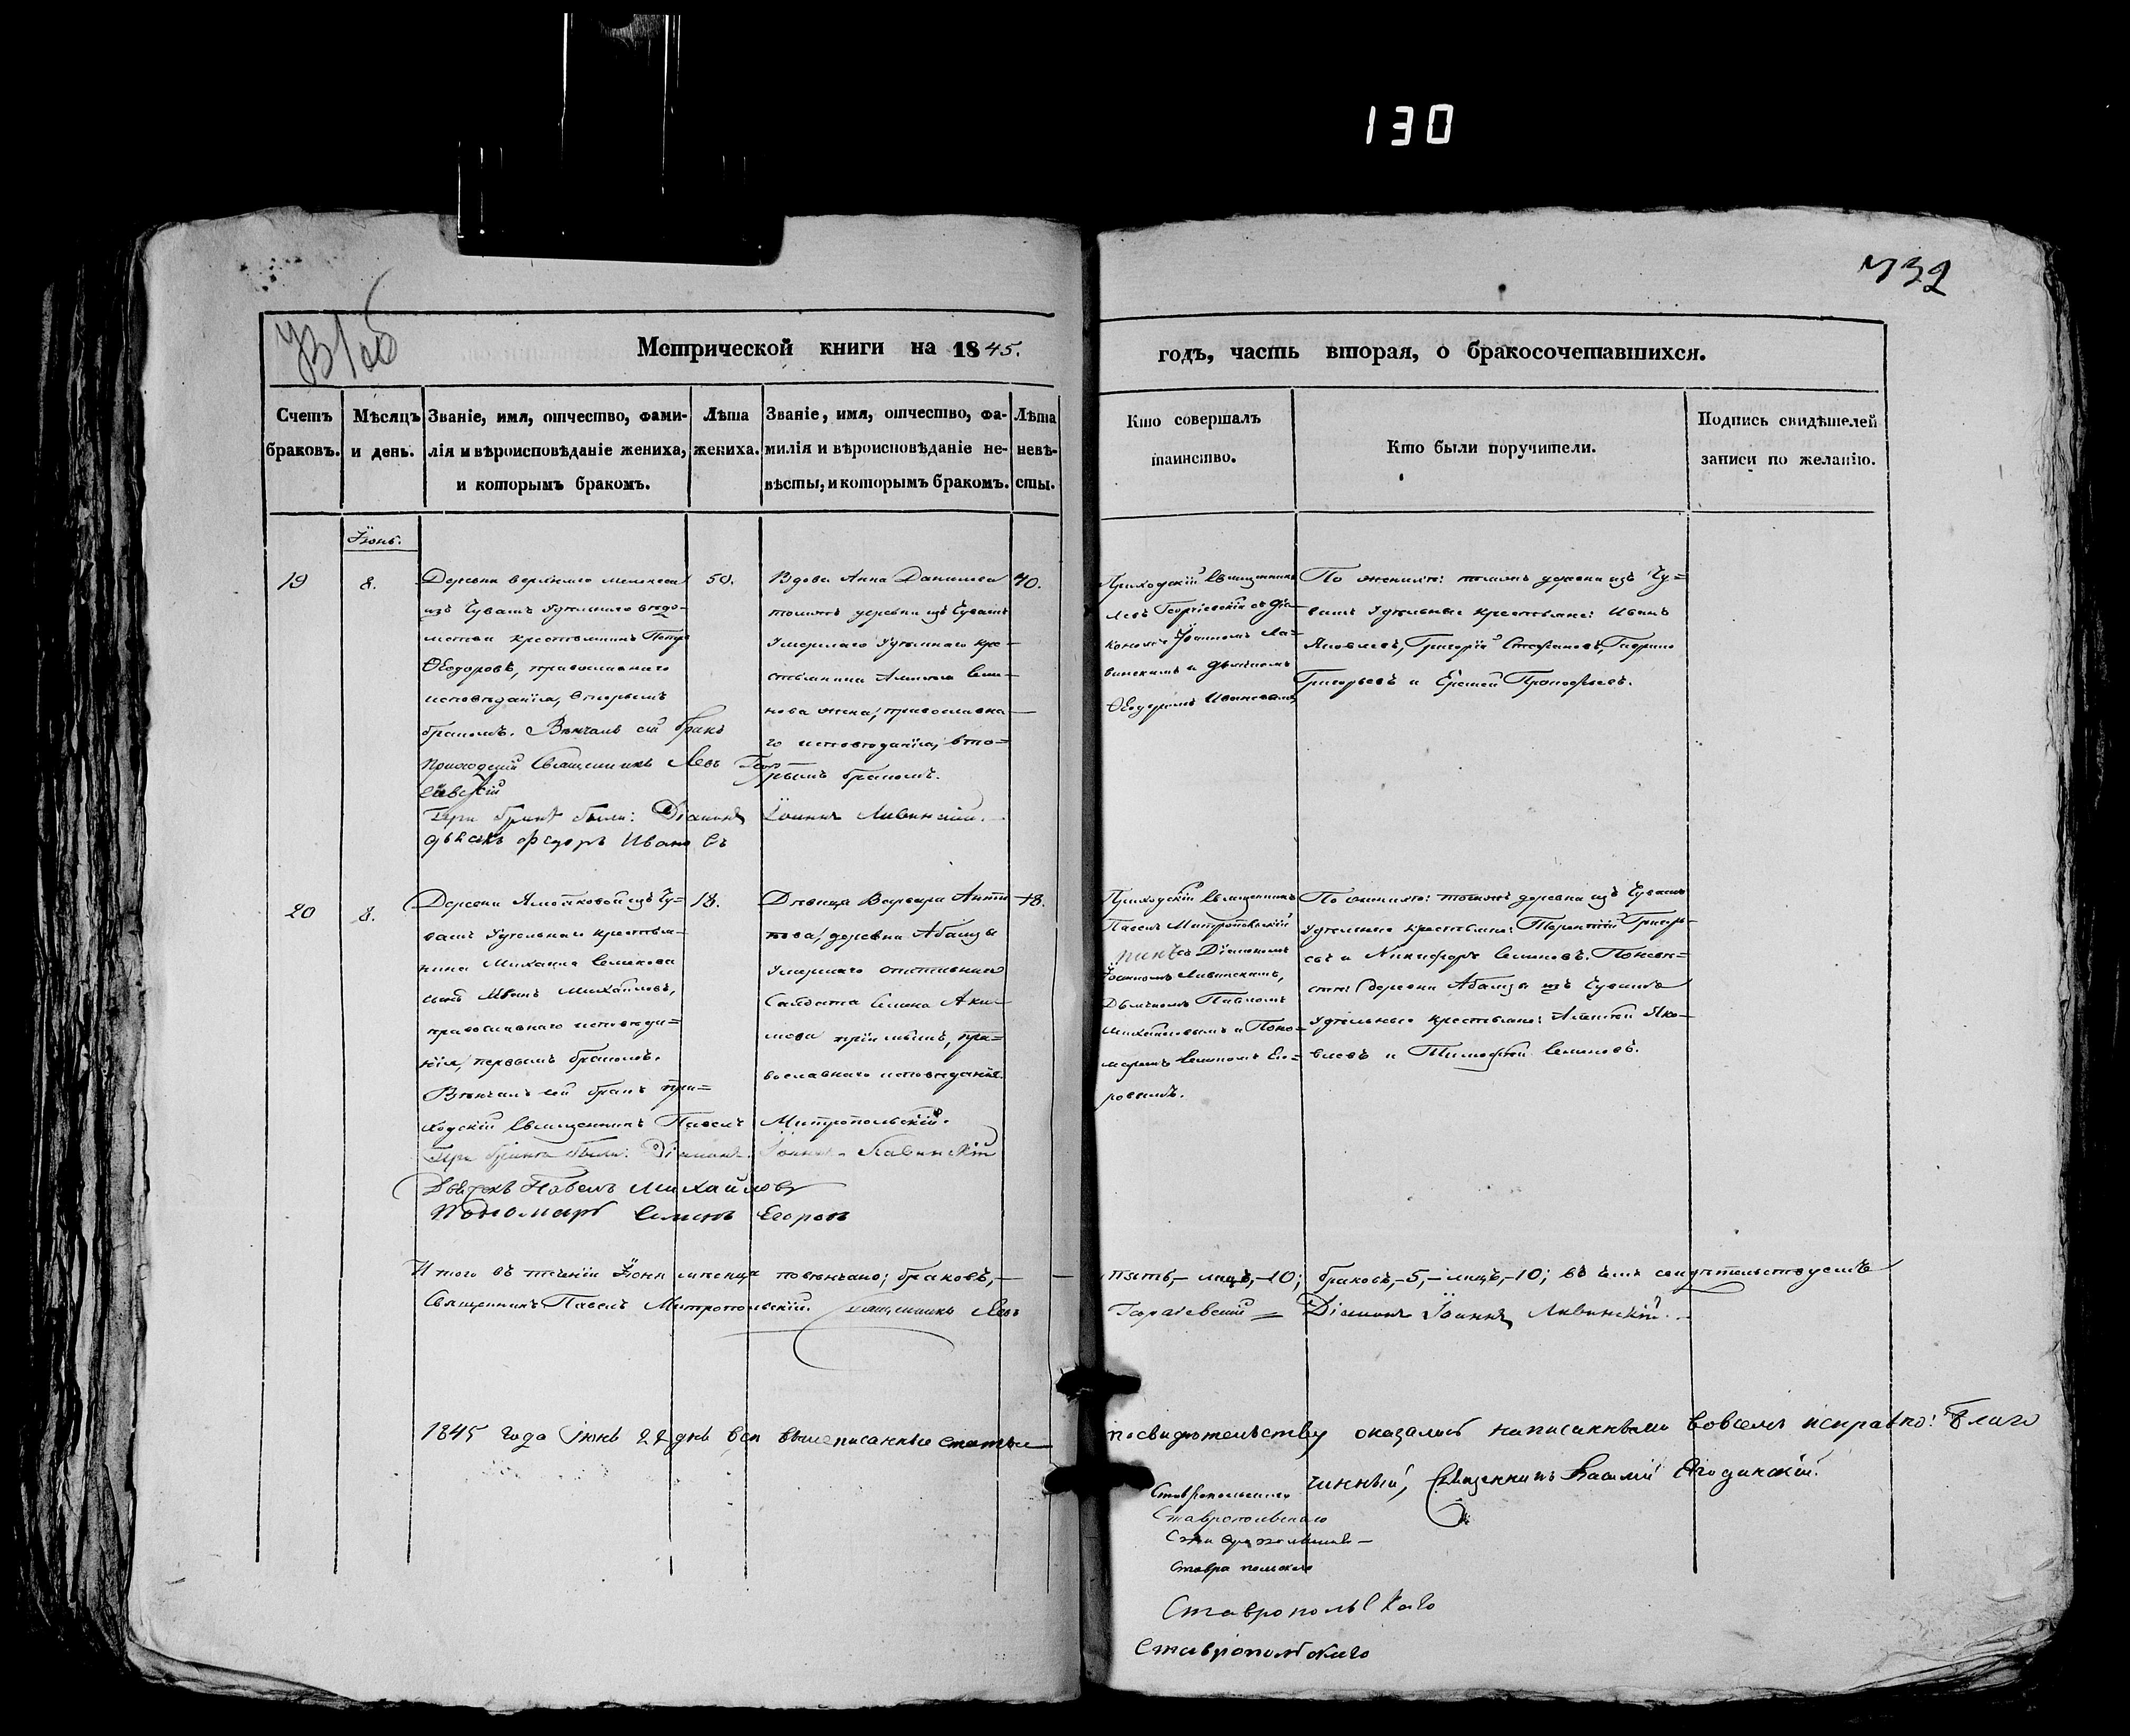 130
732
731 об
Метрической книги на 1845.
годъ, часть вторая, о бракосочетавшихся.
Счетъ браковъ.
Мѣсяцъ и день.
Званіе, имя, отчество, фами-
лія и вѣроисповѣданіе жениха,
и которымъ бракомъ.
Лѣта
жениха.
Званіе, имя, отчество, фа-
милія и вѣроисповѣданіе не-
вѣсты, и которымъ бракомъ.
Лѣта
невѣ-
сты.
Кто совершалъ
таинство.
Кто были поручители.
Подпись свидѣтелей
записи по желанію.
Іюнь.
19
8.
Деревни верхняго мелекеса
изъ Чувашъ Удѣльнаго вѣдо-
мства крестьянинъ Петръ
Ѳеодоровъ, православнаго
исповѣданія, вторымъ
бракомъ. Вѣнчалъ сей бракъ
приходскій Священникъ Левъ Геор
гіевскій
При бракѣ были: Діаконъ Іоаннъ Лавинскій.
дьячекъ Федоръ Ивановъ
50.
Вдова Анна Данилова
тоижъ деревни изъ Чувашъ
Умершаго Удѣльнаго кре-
стьянина Семе-
нова жена, православна-
го исповѣданія, вто-
рымъ бракомъ.
40.
Приходскій Священникъ
Левъ Георгіевскій съ діа-
кономъ Іоанномъ Ла-
винскимъ и дьячкомъ
Ѳеодоромъ Ивановымъ
По женихѣ: тоижъ деревни изъ Чу-
вашъ Удѣльные крестьяне: Иванъ
Яковлевъ, Григорій Стефановъ, Гаврило
Григорьевъ и Прокофьевъ.
20
8.
Деревни изъ Чу-
вашъ Удѣльнаго крестья-
нина Михаила Семенова
сынъ Иванъ Михайловъ,
православнаго исповѣда-
нія, первымъ бракомъ.
Вѣнчалъ сей бракъ при-
ходскій Священникъ Павелъ Митропольскій.
При бракѣ были: Діаконъ Іоаннъ Лавинскій
Дьячекъ Павелъ Михайловъ
Пономарь Семенъ Егоровъ
18.
Дѣвица Варвара Анти
пова, деревни Абамзы
Умершаго отставнаго
Салдата Семена Аки-
мова пріемышъ, пра-
вославнаго исповѣданія.
18.
Приходскій Священникъ
Павелъ Митропольскій
съ Діакономъ
Іоанномъ Лавинскимъ,
Дьячкомъ Павломъ
Михайловымъ и Поно-
маремъ Семеномъ Его-
ровымъ.
По женихѣ: тоижъ деревни изъ Чувашъ
Удѣльные крестьяне: Терентій Григорь-
евъ и Никифоръ Семеновъ. По невѣ-
стѣ: деревни Абамзы изъ Чувашъ
Удѣльные крестьяне: Алексѣй Яко-
влевъ и Тимофей Семеновъ.
Итого въ теченіи Іюня мѣсяца повѣнчано; браковъ,- пять,- лицъ,-10; браковъ,-5,-лицъ,-10; въ чемъ свидѣтельствуемъ
Священникъ Павелъ Митропольскій. Священникъ Левъ Георгіевскій Діаконъ Іоаннъ Лавинскій.
1845 года Іюнь 22 днь вси вышеписанные статьи посвидѣтельству оказались написанными вовсемъ исправно: Благо
чинный, Священникъ Василій Ягодинскій.
Ставропольскаго
Ставропольскаго
Ставропольскаго
Ставропольскаго
Ставропольскаго
Ставропольскаго